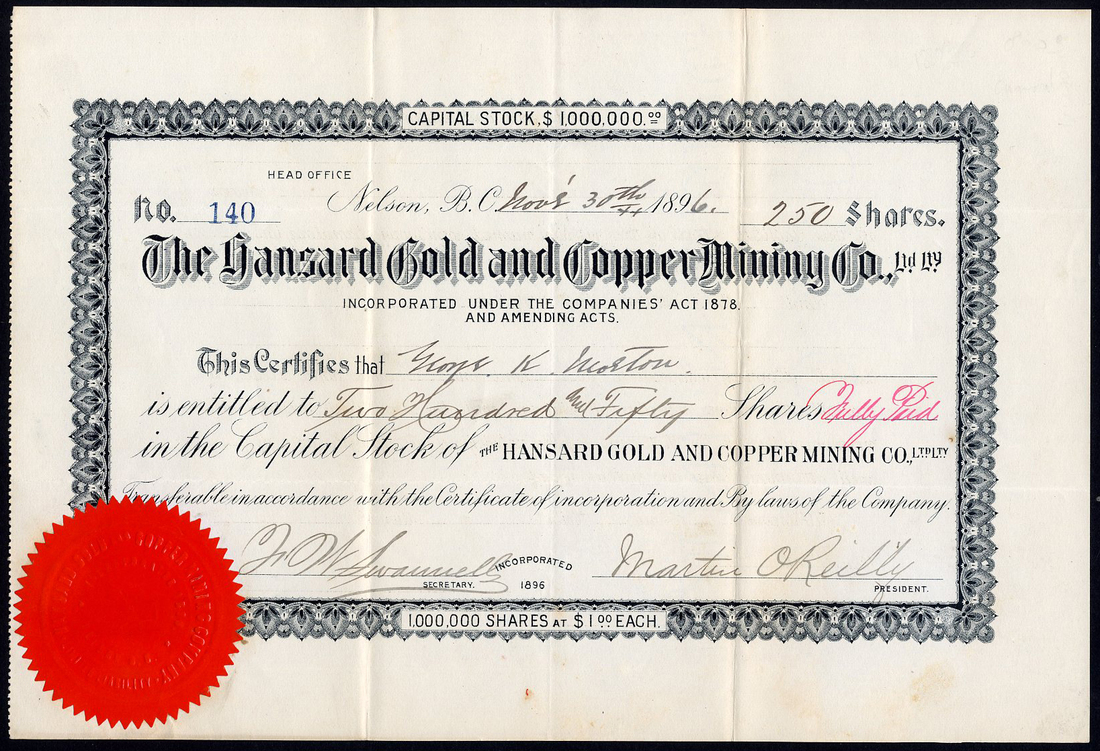 CAPITAL STOCK, $ 1,000,000.00
HEAD OFFICE
No. 140 Nelson, B.C. Nov'r 30th 1896. 250 Shares.
The Hansard Gold and Copper Mining Co., Ltd Lty
INCORPORATED UNDER THE COMPANIES' ACT 1878.
AND AMENDING ACTS.
This Certifies that K. Morton.
is entitled to Two Hundred and Fifty Shares Fully Paid
in the Capital Stock of THE HANSARD GOLD AND COPPER MINING CO., LTD LTY
Transferable in accordance with the Certificate of incorporation and By laws of the Company.
F W Swannell Martin O'Reilly
SECRETARY. INCORPORATED 1896 PRESIDENT.
1,000,000 SHARES AT $ 1.00 EACH.